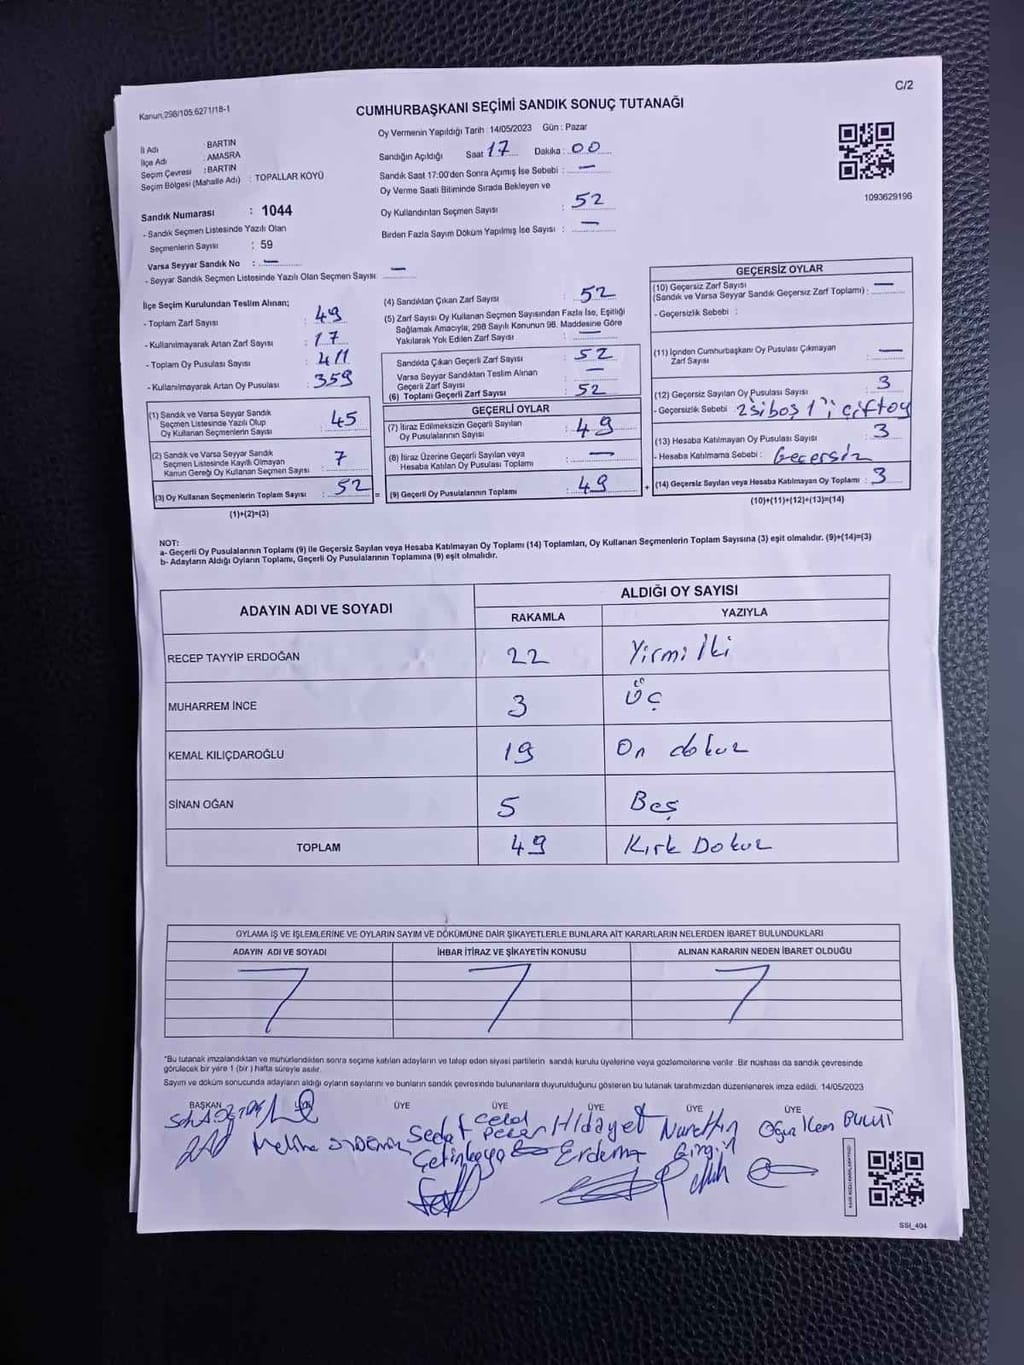 C/2
Kanun:298/105:6271/18-1
CUMHURBAŞKANI SEÇİMİ SANDIK SONUÇ TUTANAĞI
İl Adı : BARTIN
İlçe Adı : AMASRA
Seçim Çevresi : BARTIN
Seçim Bölgesi (Mahalle Adı) : TOPALLAR KÖYÜ
Sandık Numarası : 1044
- Sandık Seçmen Listesinde Yazılı Olan
Seçmenlerin Sayısı : 59
Varsa Seyyar Sandık No : —
- Seyyar Sandık Seçmen Listesinde Yazılı Olan Seçmen Sayısı : —
Oy Vermenin Yapıldığı Tarih : 14/05/2023 Gün : Pazar
Sandığın Açıldığı Saat : 17 Dakika : 00
Sandık Saat 17:00'den Sonra Açımış İse Sebebi : —
Oy Verme Saati Bitiminde Sırada Bekleyen ve
Oy Kullandırılan Seçmen Sayısı : 52
Birden Fazla Sayım Döküm Yapılmış İse Sayısı : —
1093629196
İlçe Seçim Kurulundan Teslim Alınan;
- Toplam Zarf Sayısı : 49
- Kullanılmayarak Artan Zarf Sayısı : 17
- Toplam Oy Pusulası Sayısı : 411
- Kullanılmayarak Artan Oy Pusulası : 359
(1) Sandık ve Varsa Seyyar Sandık
Seçmen Listesinde Yazılı Olup
Oy Kullanan Seçmenlerin Sayısı : 45
(2) Sandık ve Varsa Seyyar Sandık
Seçmen Listesinde Kayıtlı Olmayan
Kanun Gereği Oy Kullanan Seçmen Sayısı : 7
(3) Oy Kullanan Seçmenlerin Toplam Sayısı : 52 =
(1)+(2)=(3)
(4) Sandıktan Çıkan Zarf Sayısı : 52
(5) Zarf Sayısı Oy Kullanan Seçmen Sayısından Fazla İse, Eşitliği
Sağlamak Amacıyla, 298 Sayılı Konunun 98. Maddesine Göre
Yakılarak Yok Edilen Zarf Sayısı : —
Sandıkta Çıkan Geçerli Zarf Sayısı : 52
Varsa Seyyar Sandıktan Teslim Alınan
Geçerli Zarf Sayısı : —
(6) Toplam Geçerli Zarf Sayısı : 52
GEÇERLİ OYLAR
(7) İtiraz Edilmeksizin Geçerli Sayılan
Oy Pusulalarının Sayısı : 49
(8) İtiraz Üzerine Geçerli Sayılan veya
Hesaba Katılan Oy Pusulası Toplamı : —
(9) Geçerli Oy Pusulalarının Toplamı : 49 +
GEÇERSİZ OYLAR
(10) Geçersiz Zarf Sayısı
(Sandık ve Varsa Seyyar Sandık Geçersiz Zarf Toplamı) : —
- Geçersizlik Sebebi :
(11) İçinden Cumhurbaşkanı Oy Pusulası Çıkmayan
Zarf Sayısı : —
(12) Geçersiz Sayılan Oy Pusulası Sayısı : 3
- Geçersizlik Sebebi : 2'si boş 1'i çift oy
(13) Hesaba Katılmayan Oy Pusulası Sayısı : 3
- Hesaba Katılmama Sebebi : Geçersiz
(14) Geçersiz Sayılan veya Hesaba Katılmayan Oy Toplamı : 3
(10)+(11)+(12)+(13)=(14)
NOT:
a- Geçerli Oy Pusulalarının Toplamı (9) ile Geçersiz Sayılan veya Hesaba Katılmayan Oy Toplamı (14) Toplamları, Oy Kullanan Seçmenlerin Toplam Sayısına (3) eşit olmalıdır. (9)+(14)=(3)
b- Adayların Aldığı Oyların Toplamı, Geçerli Oy Pusulalarının Toplamına (9) eşit olmalıdır.
ADAYIN ADI VE SOYADI
ALDIĞI OY SAYISI
RAKAMLA YAZIYLA
RECEP TAYYİP ERDOĞAN 22 Yirmi İki
MUHARREM İNCE 3 Üç
KEMAL KILIÇDAROĞLU 19 On dokuz
SİNAN OĞAN 5 Beş
TOPLAM 49 Kırk Dokuz
OYLAMA İŞ VE İŞLEMLERİNE VE OYLARIN SAYIM VE DÖKÜMÜNE DAİR ŞİKAYETLERLE BUNLARA AİT KARARLARIN NELERDEN İBARET BULUNDUKLARI
ADAYIN ADI VE SOYADI İHBAR İTİRAZ VE ŞİKAYETİN KONUSU ALINAN KARARIN NEDEN İBARET OLDUĞU
*Bu tutanak imzalandıktan ve mühürlendikten sonra seçime katılan adayların ve talep eden siyasi partilerin sandık kurulu üyelerine veya gözlemcilerine verilir. Bir nüshası da sandık çevresinde
görülecek bir yere 1 (bir) hafta süreyle asılır.
Sayım ve döküm sonucunda adayların aldığı oyların sayılarını ve bunların sandık çevresinde bulunanlara duyurulduğunu gösteren bu tutanak tarafımızdan düzenlenerek imza edildi. 14/05/2023
BAŞKAN ÜYE ÜYE ÜYE ÜYE ÜYE ÜYE
Sedat Celal Hidayet Nurettin Oğuz BULUT
Çetinkaya Erdem Girgin
SSI_404